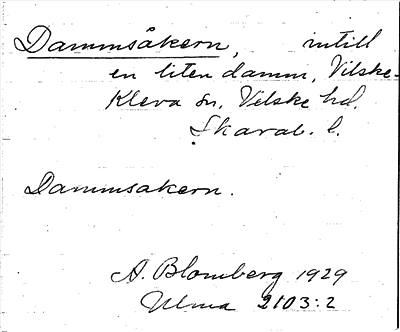 Dammsåkern, intill
en liten damm, Vilske-
Kleva sn, Vilske hd.
Skarab. l.
Dammsakern.
A. Blomberg 1929
Ulma 2103:2